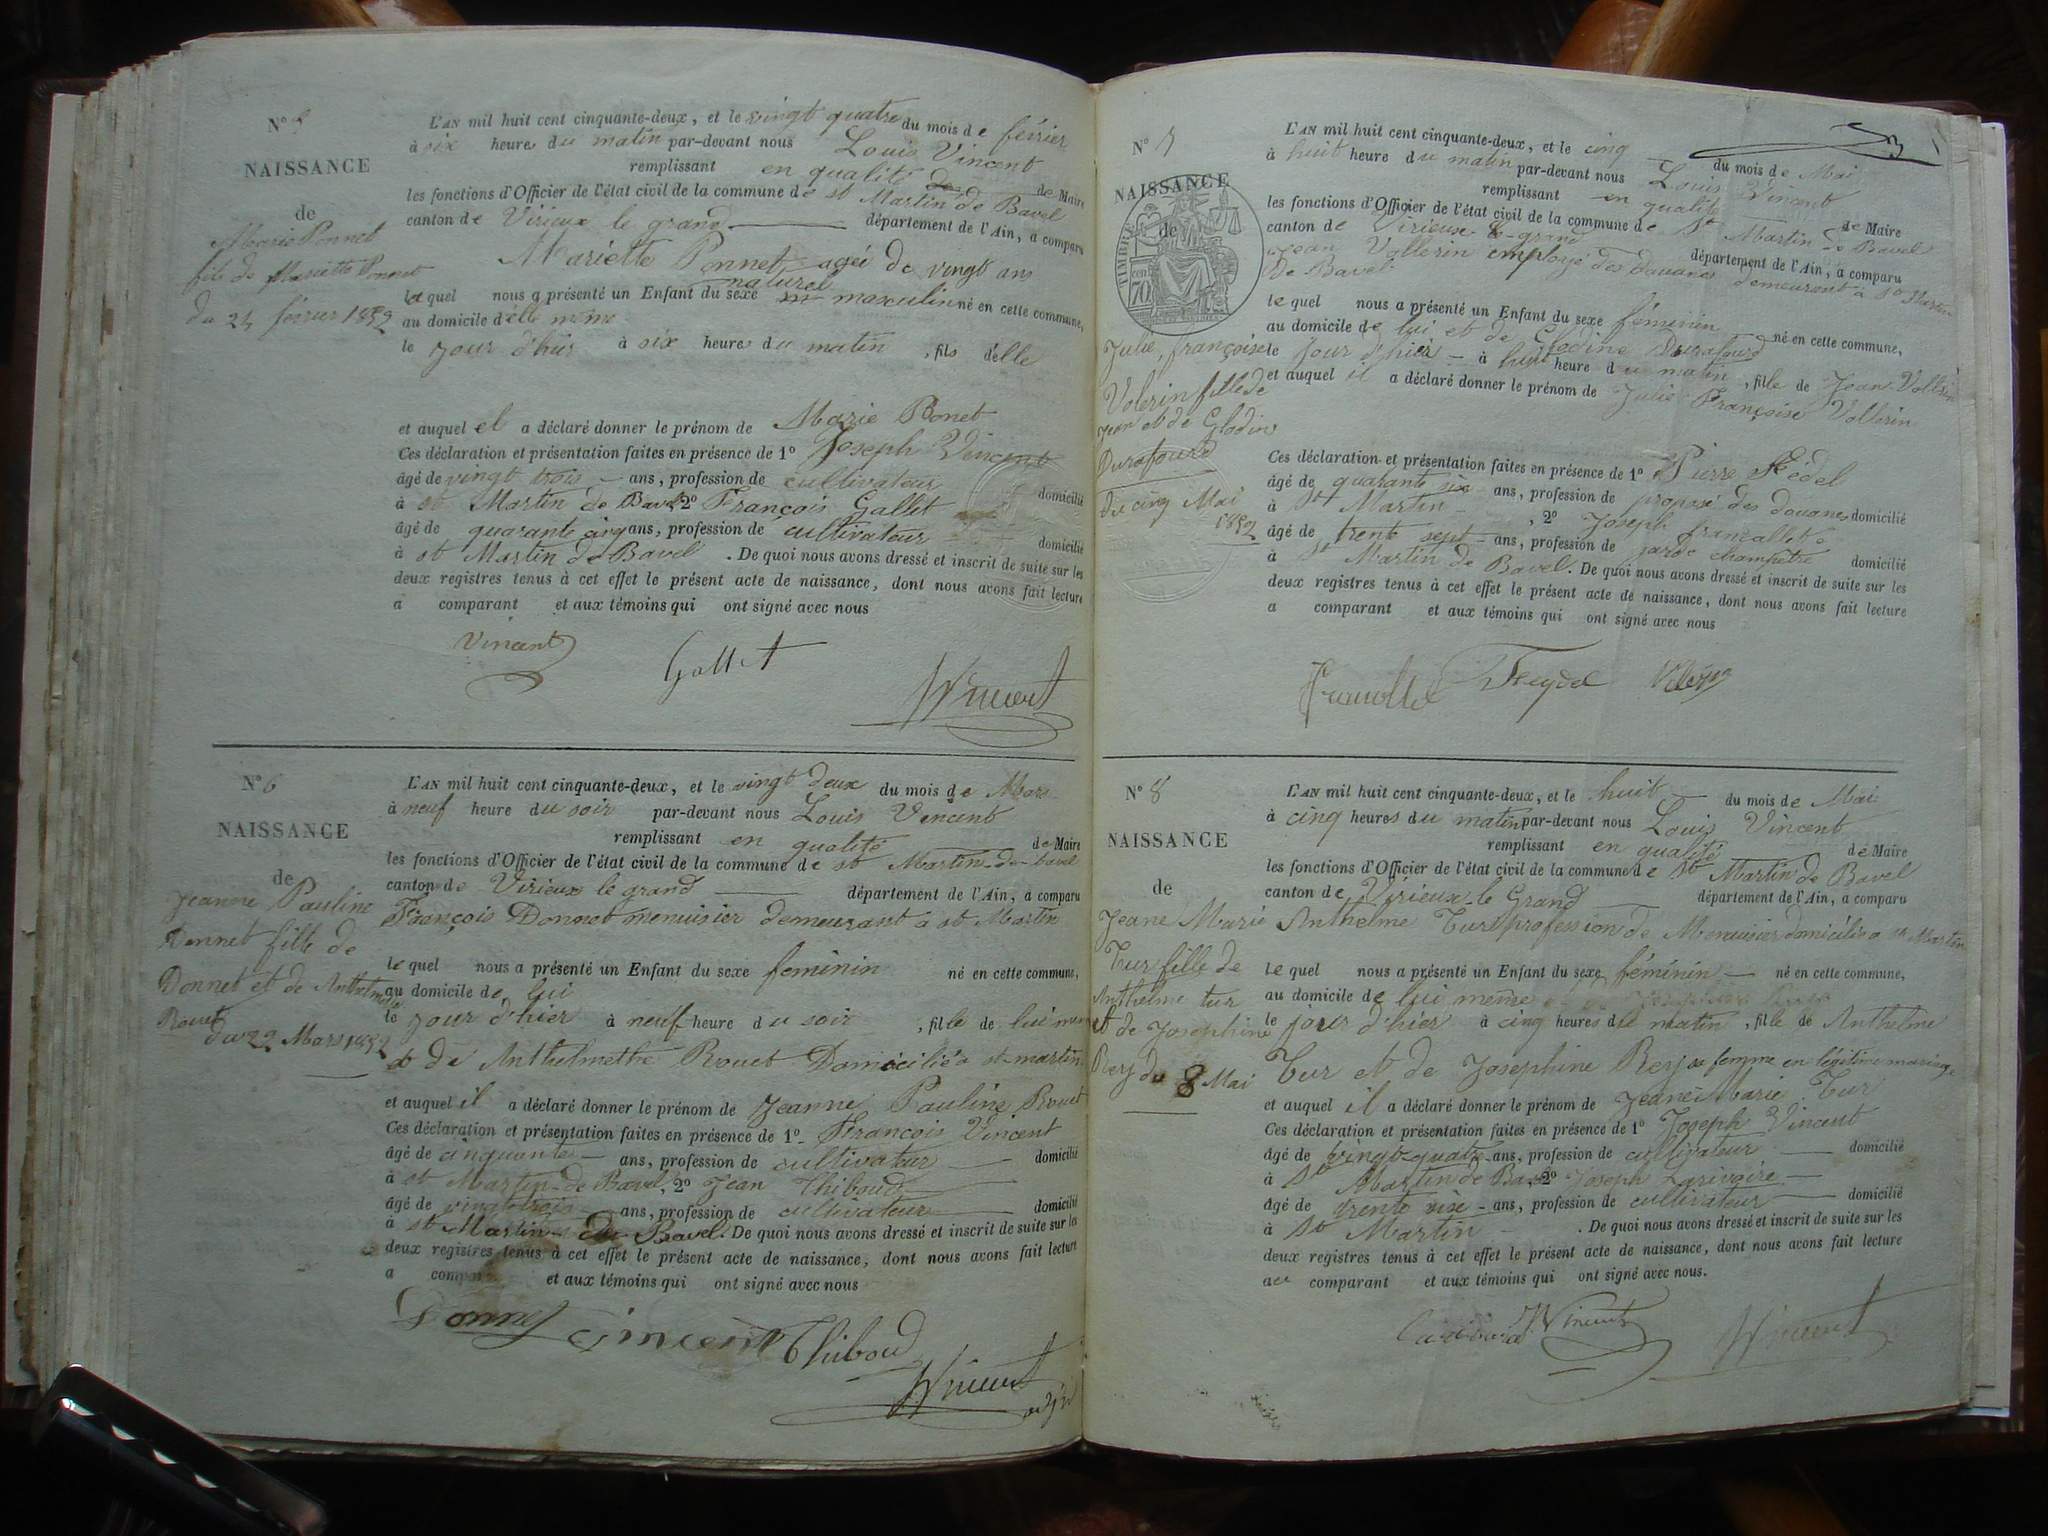 N° 5
NAISSANCE
de
Marie Ponnet
fils de Mariette Ponnet
du 24 février 1852
L'AN mil huit cent cinquante-deux, et le vingt quatre du mois de février
à six heures du matin par-devant nous Louis Vincent
remplissant en qualité de de Maire
les fonctions d'Officier de l'état civil de la commune de st Martin de Bavel
canton de Virieux le grand département de l'Ain, a comparu
Mariette Ponnet agée de vingt ans
naturel
lequel nous a présenté un Enfant du sexe masculin né en cette commune,
au domicile d'elle même
le jour d'hier à six heures du matin, fils d'elle
et auquel el a déclaré donner le prénom de Marie Ponet
Ces déclaration et présentation faites en présence de 1° Joseph Vincent
âgé de vingt trois ans, profession de cultivateur domicilié
à st Martin de Bavel 2° François Gallet
âgé de quarante cinq ans, profession de cultivateur domicilié
à st Martin de Bavel. De quoi nous avons dressé et inscrit de suite sur les
deux registres tenus à cet effet le présent acte de naissance, dont nous avons fait lecture
a comparant et aux témoins qui ont signé avec nous
Vincent Gallet Vincent
N° 6
NAISSANCE
de
Jeanne Pauline
Donnet fille de
Donnet et de Anthelmette
Rouet
du 22 Mars 1852
L'AN mil huit cent cinquante-deux, et le vingt deux du mois de Mars
à neuf heure du soir par-devant nous Louis Vincent
remplissant en qualité de Maire
les fonctions d'Officier de l'état civil de la commune de st Martin-de-bavel
canton de Virieux le grand département de l'Ain, a comparu
François Donnet menuisier demeurant à st Martin
lequel nous a présenté un Enfant du sexe feminin né en cette commune,
au domicile de lui
le jour d'hier à neuf heure du soir, fille de lui meme
et de Anthelmethe Rouet Domicilié à st-martin
et auquel il a déclaré donner le prénom de Jeanne Pauline Rouet
Ces déclaration et présentation faites en présence de 1° François Vincent
âgé de cinquante ans, profession de cultivateur domicilié
à st Martin-de Bavel, 2° Jean Thiboud
âgé de vingt trois ans, profession de cultivateur domicilié
à st Martin de Bavel. De quoi nous avons dressé et inscrit de suite sur les
deux registres tenus à cet effet le présent acte de naissance, dont nous avons fait lecture
a compa et aux témoins qui ont signé avec nous
Donnet Vincent Thiboud
Vincent
N° 7
NAISSANCE
de
TIMBRE
70 cent
Julie, françoise
Volerin fille de
jean et de Glodine
Durafourd
du cinq Mai
1852
L'AN mil huit cent cinquante-deux, et le cinq du mois de Mai
à huit heure du matin par-devant nous Louis Vincent
remplissant en qualité de Maire
les fonctions d'Officier de l'état civil de la commune de St Martin de Bavel
canton de Virieux-le-grand département de l'Ain, a comparu
Jean Vollerin employé des douanes demeurant à St Martin
De Bavel
lequel nous a présenté un Enfant du sexe féminin né en cette commune,
au domicile de lui et de Glodine Durafourd
le jour d'hier à huit heure du matin, fille de Jean Vollerin
et auquel il a déclaré donner le prénom de Julie Françoise Vollerin
Ces déclaration et présentation faites en présence de 1° Pierre Fédel
âgé de quarante six ans, profession de proposé des douanes domicilié
à St Martin, 2° Joseph francallet
âgé de trente sept ans, profession de garde champetre domicilié
à St Martin de Bavel. De quoi nous avons dressé et inscrit de suite sur les
deux registres tenus à cet effet le présent acte de naissance, dont nous avons fait lecture
a comparant et aux témoins qui ont signé avec nous
N° 8
NAISSANCE
de
Jeane Marie
Tur fille de
Anthelme tur
et de Josephine
Rey du 8 Mai
L'AN mil huit cent cinquante-deux, et le huit du mois de Mai
à cinq heures du matin par-devant nous Louis Vincent
remplissant en qualité de Maire
les fonctions d'Officier de l'état civil de la commune de St Martin de Bavel
canton de Virieux le Grand département de l'Ain, a comparu
Anthelme Tur profession de Menuisier domicilié a st Martin
lequel nous a présenté un Enfant du sexe féminin né en cette commune,
au domicile de lui même
le jour d'hier à cinq heures du matin, fille de Anthelme
Tur et de Josephine Rey sa femme en légitime mariage
et auquel il a déclaré donner le prénom de Jeane Marie Tur
Ces déclaration et présentation faites en présence de 1° Joseph Vincent
âgé de vingt quatre ans, profession de cultivateur domicilié
à St Martin de Bavel 2° Joseph Larivoire
âgé de trente six ans, profession de cultivateur domicilié
à St Martin. De quoi nous avons dressé et inscrit de suite sur les
deux registres tenus à cet effet le présent acte de naissance, dont nous avons fait lecture
au comparant et aux témoins qui ont signé avec nous.
Vincent Vincent